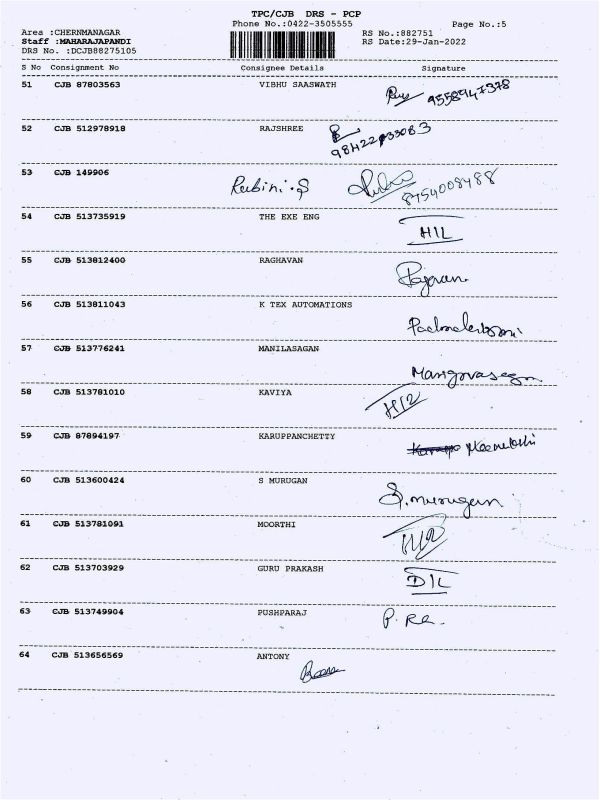 TPC/CJB DRS - PCP
Phone No.:0422-3505555 Page No.:5
Area :CHERNMANAGAR RS No.:882751
Staff :MAHARAJAPANDI RS Date:29-Jan-2022
DRS No. :DCJB88275105
S No Consignment No Consignee Details Signature
51 CJB 87803563 VIBHU SAASWATH
9558947378
52 CJB 512978918 RAJSHREE
53 CJB 149906 Rubini.S
8754008488
54 CJB 513735919 THE EXE ENG
H1L
55 CJB 513812400 RAGHAVAN
56 CJB 513811043 K TEX AUTOMATIONS
57 CJB 513776241 MANILASAGAN
58 CJB 513781010 KAVIYA
59 CJB 87894197 KARUPPANCHETTY
60 CJB 513600424 S MURUGAN
S.murugan
61 CJB 513781091 MOORTHI
62 CJB 513703929 GURU PRAKASH
D1L
63 CJB 513749904 PUSHPARAJ
64 CJB 513656569 ANTONY